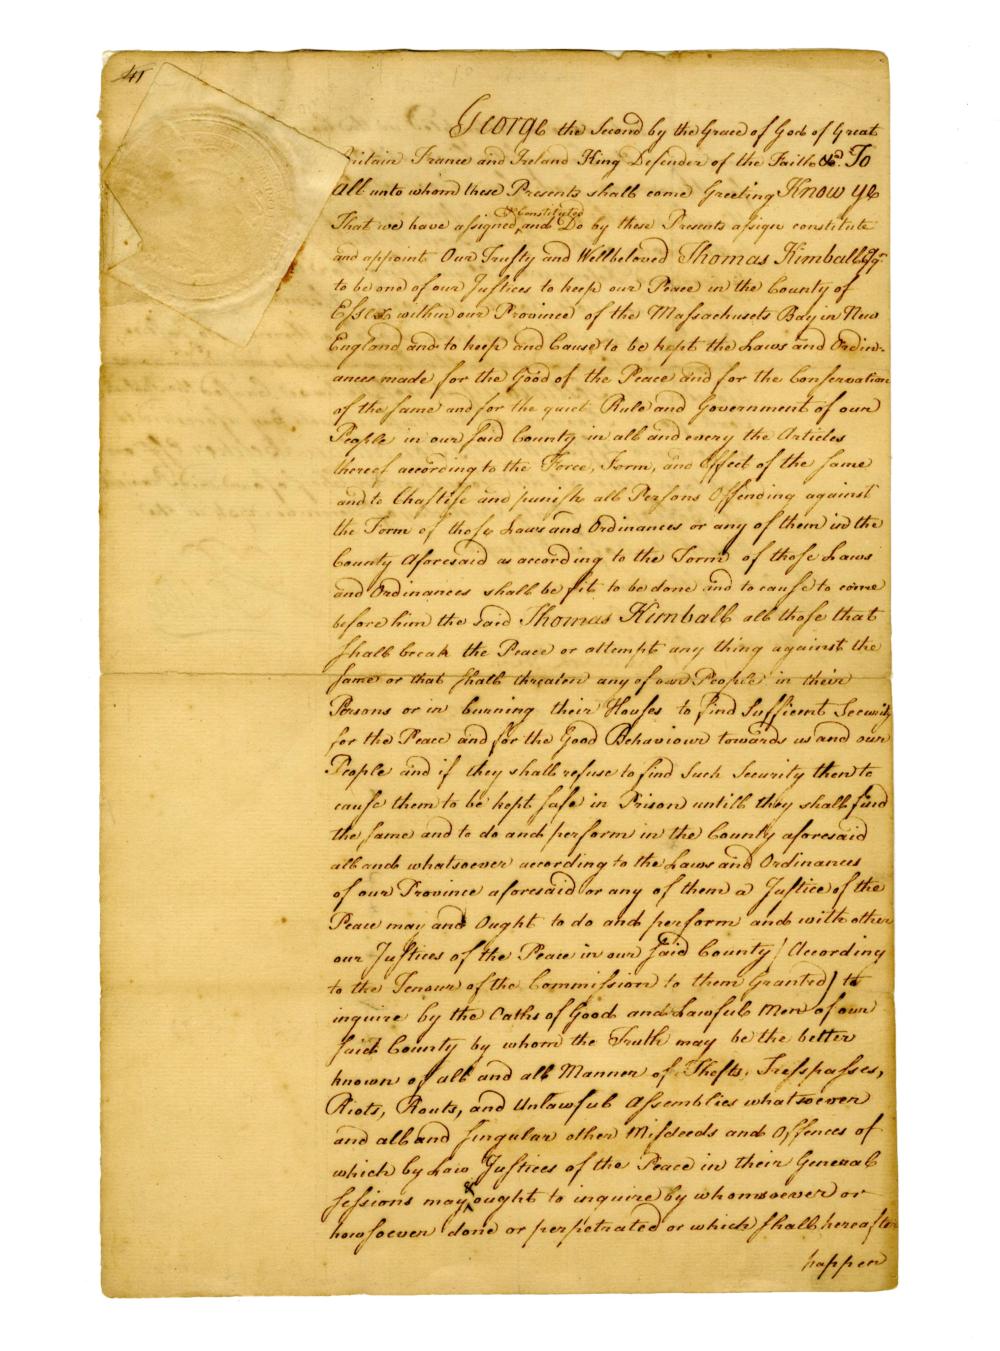 41
George the Second by the Grace of God of Great
Britain France and Ireland King Defender of the Faith &c. To
All unto whom these Presents shall come Greeting Know ye
& Constituted
That we have assigned, and Do by these Presents assign constitute
and appoint Our Trusty and Wellbeloved Thomas Kimball Esqr.
to be one of our Justices to keep our Peace in the County of
Essex within our Province of the Massachusets Bay in New
England and to keep and Cause to be kept the Laws and Ordin-
ances made for the Good of the Peace and for the Conservation
of the same and for the quiet Rule and Government of our
People in our said County in all and every the Articles
thereof according to the Force, Form, and Effect of the same
and to Chastise and punish all Persons Offending against
the Form of those Laws and Ordinances or any of them in the
County Aforesaid as according to the Form of those Laws
and Ordinances shall be fit to be done and to cause to come
before him the said Thomas Kimball all those that
shall break the Peace or attempt any thing against the
same or that shall threaten any of our People in their
Persons or in burning their Houses to find Sufficient Security
for the Peace and for the Good Behaviour towards us and our
People and if they shall refuse to find Such Security then to
cause them to be kept safe in Prison untill they shall find
the same and to do and perform in the County aforesaid
all and whatsoever according to the Laws and Ordinances
of our Province aforesaid or any of them a Justice of the
Peace may and Ought to do and perform and with other
our Justices of the Peace in our said County (According
to the Tenour of the Commission to them Granted) to
inquire by the Oaths of Good and Lawful Men of our
said County by whom the Truth may be the better
known of all and all Manner of Thefts, Tresspasses,
Riots, Routs, and Unlawful Assemblies whatsoever
and all and singular other Misdeeds and Offences of
which by Law Justices of the Peace in their General
&
Sessions may ought to inquire by whomsoever or
howsoever done or perpetrated or which shall hereafter
happen